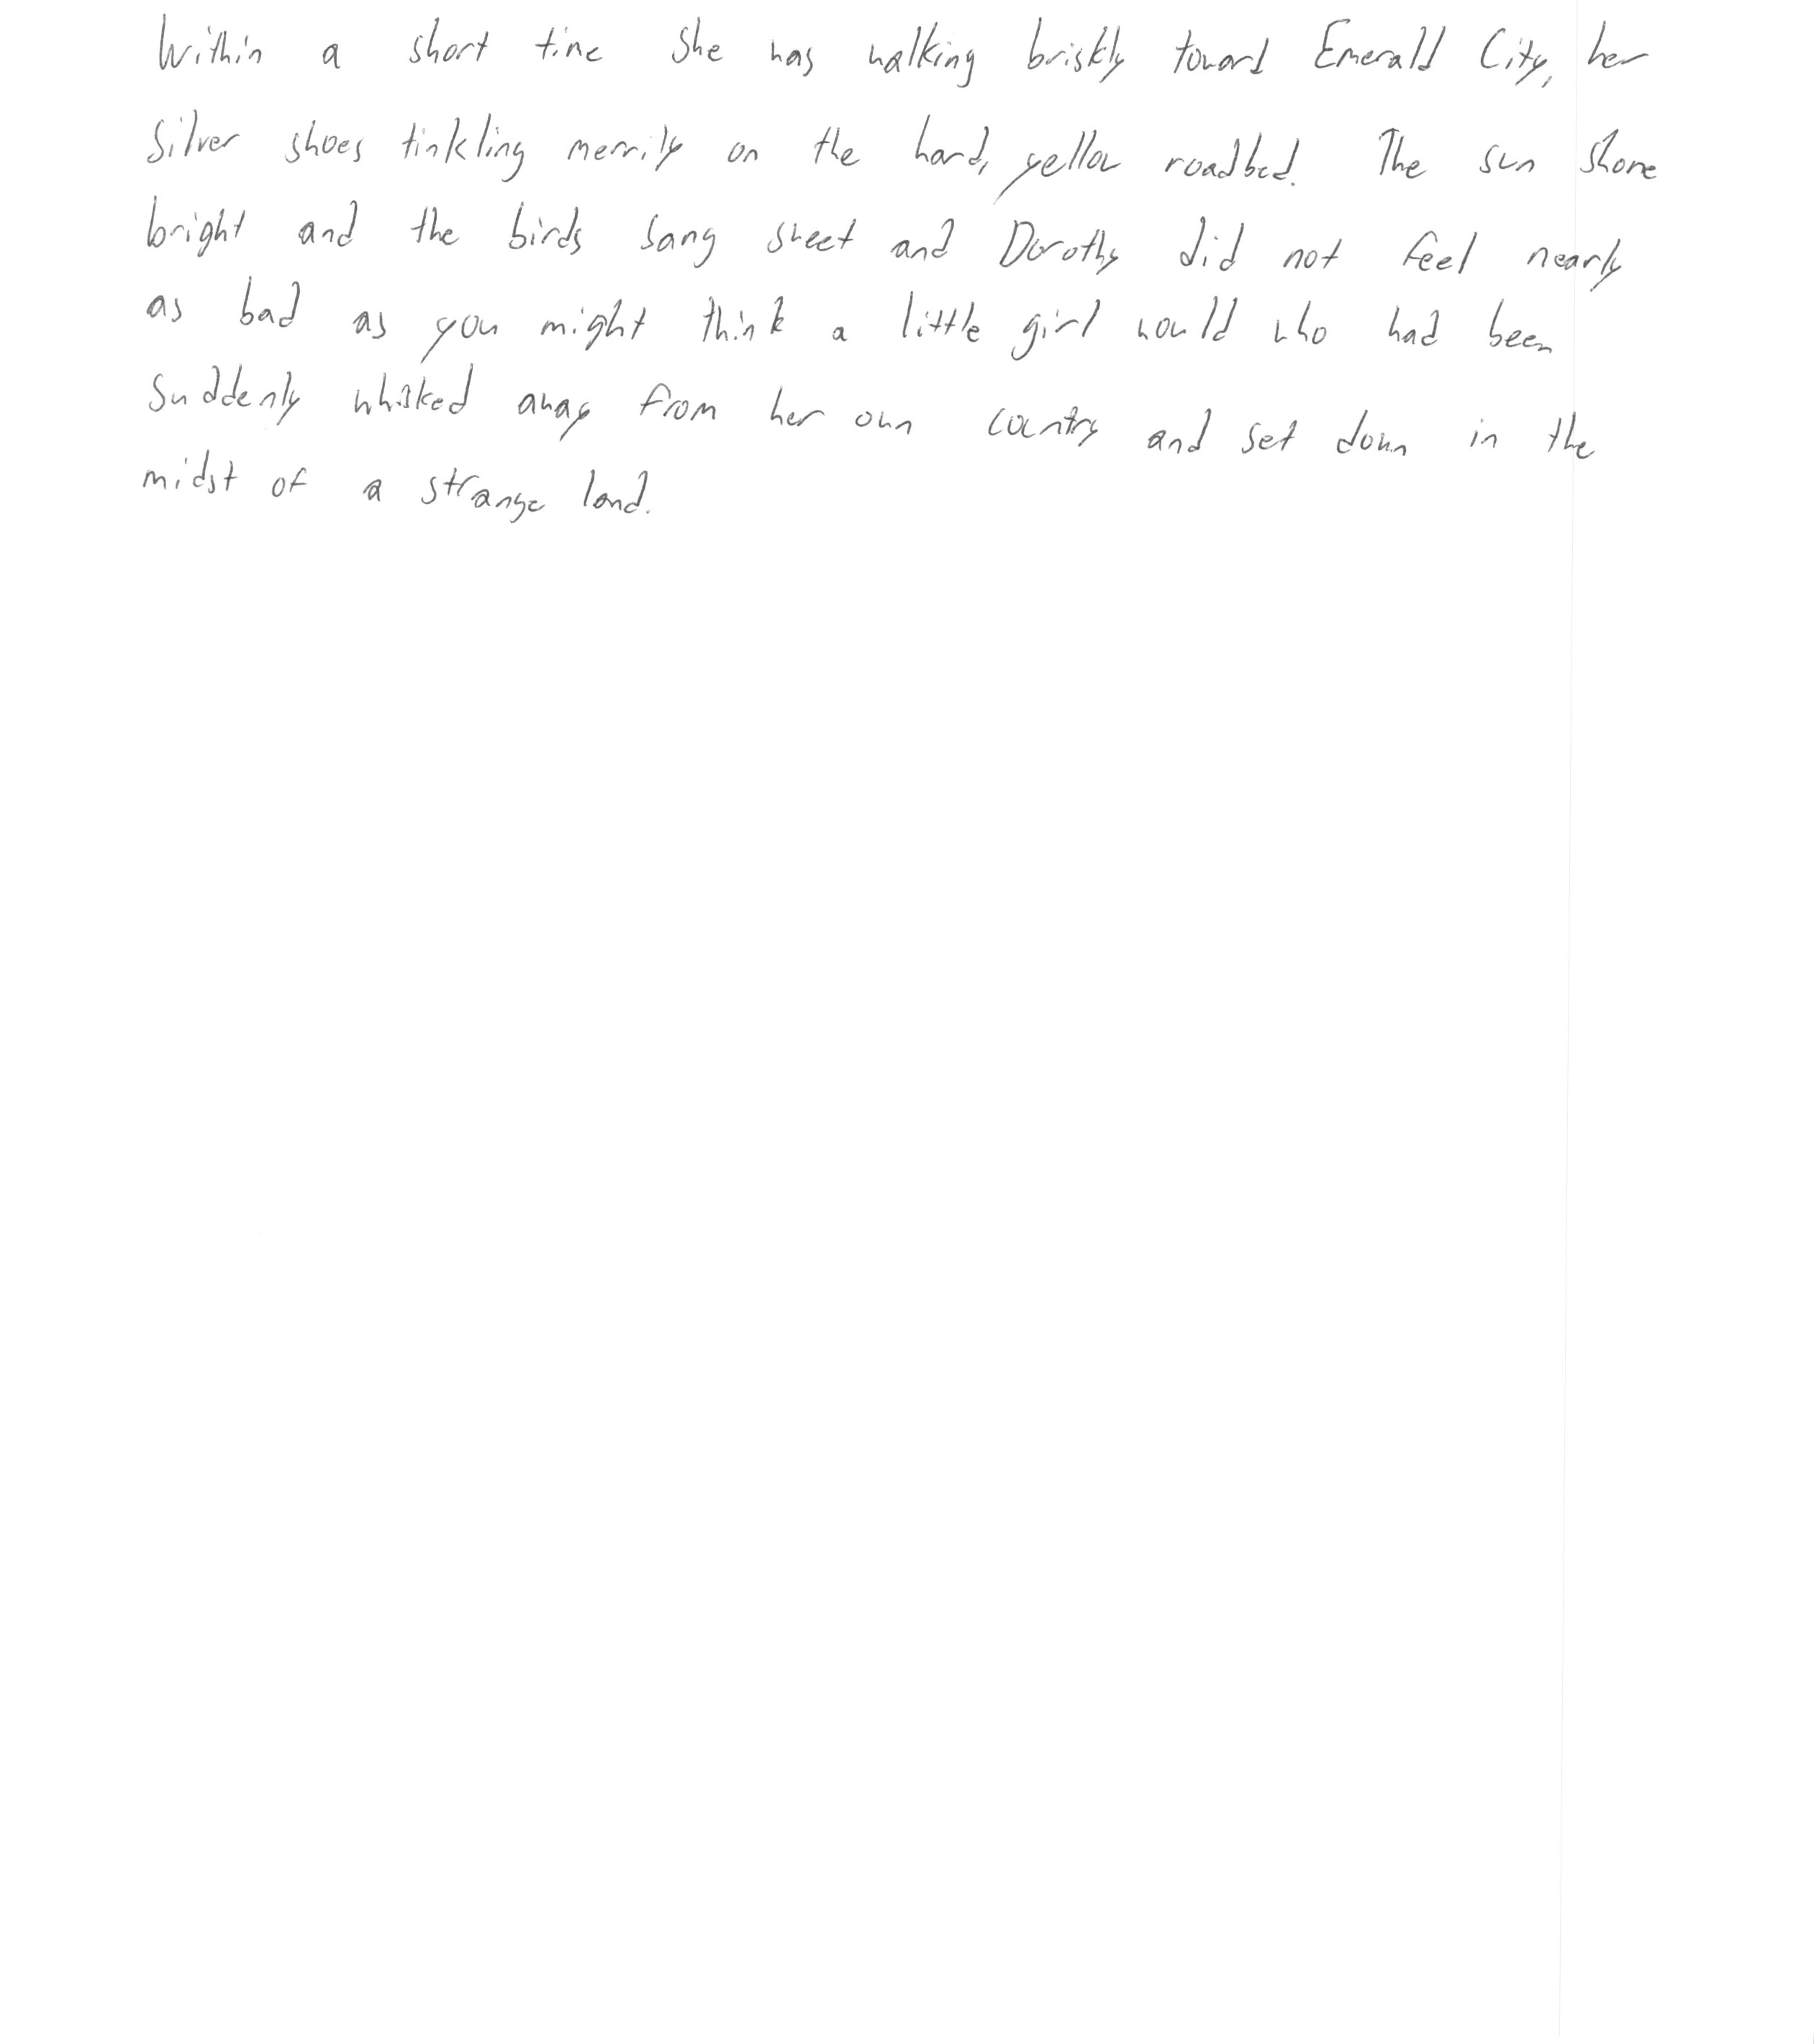 Within a short time she was walking briskly toward Emerald City, her
silver shoes tinkling merrily on the hard, yellow roadbed. The sun shone
bright and the birds sang sweet and Dorothy did not feel nearly
as bad as you might think a little girl would who had been
suddenly whisked away from her own country and set down in the
midst of a strange land.